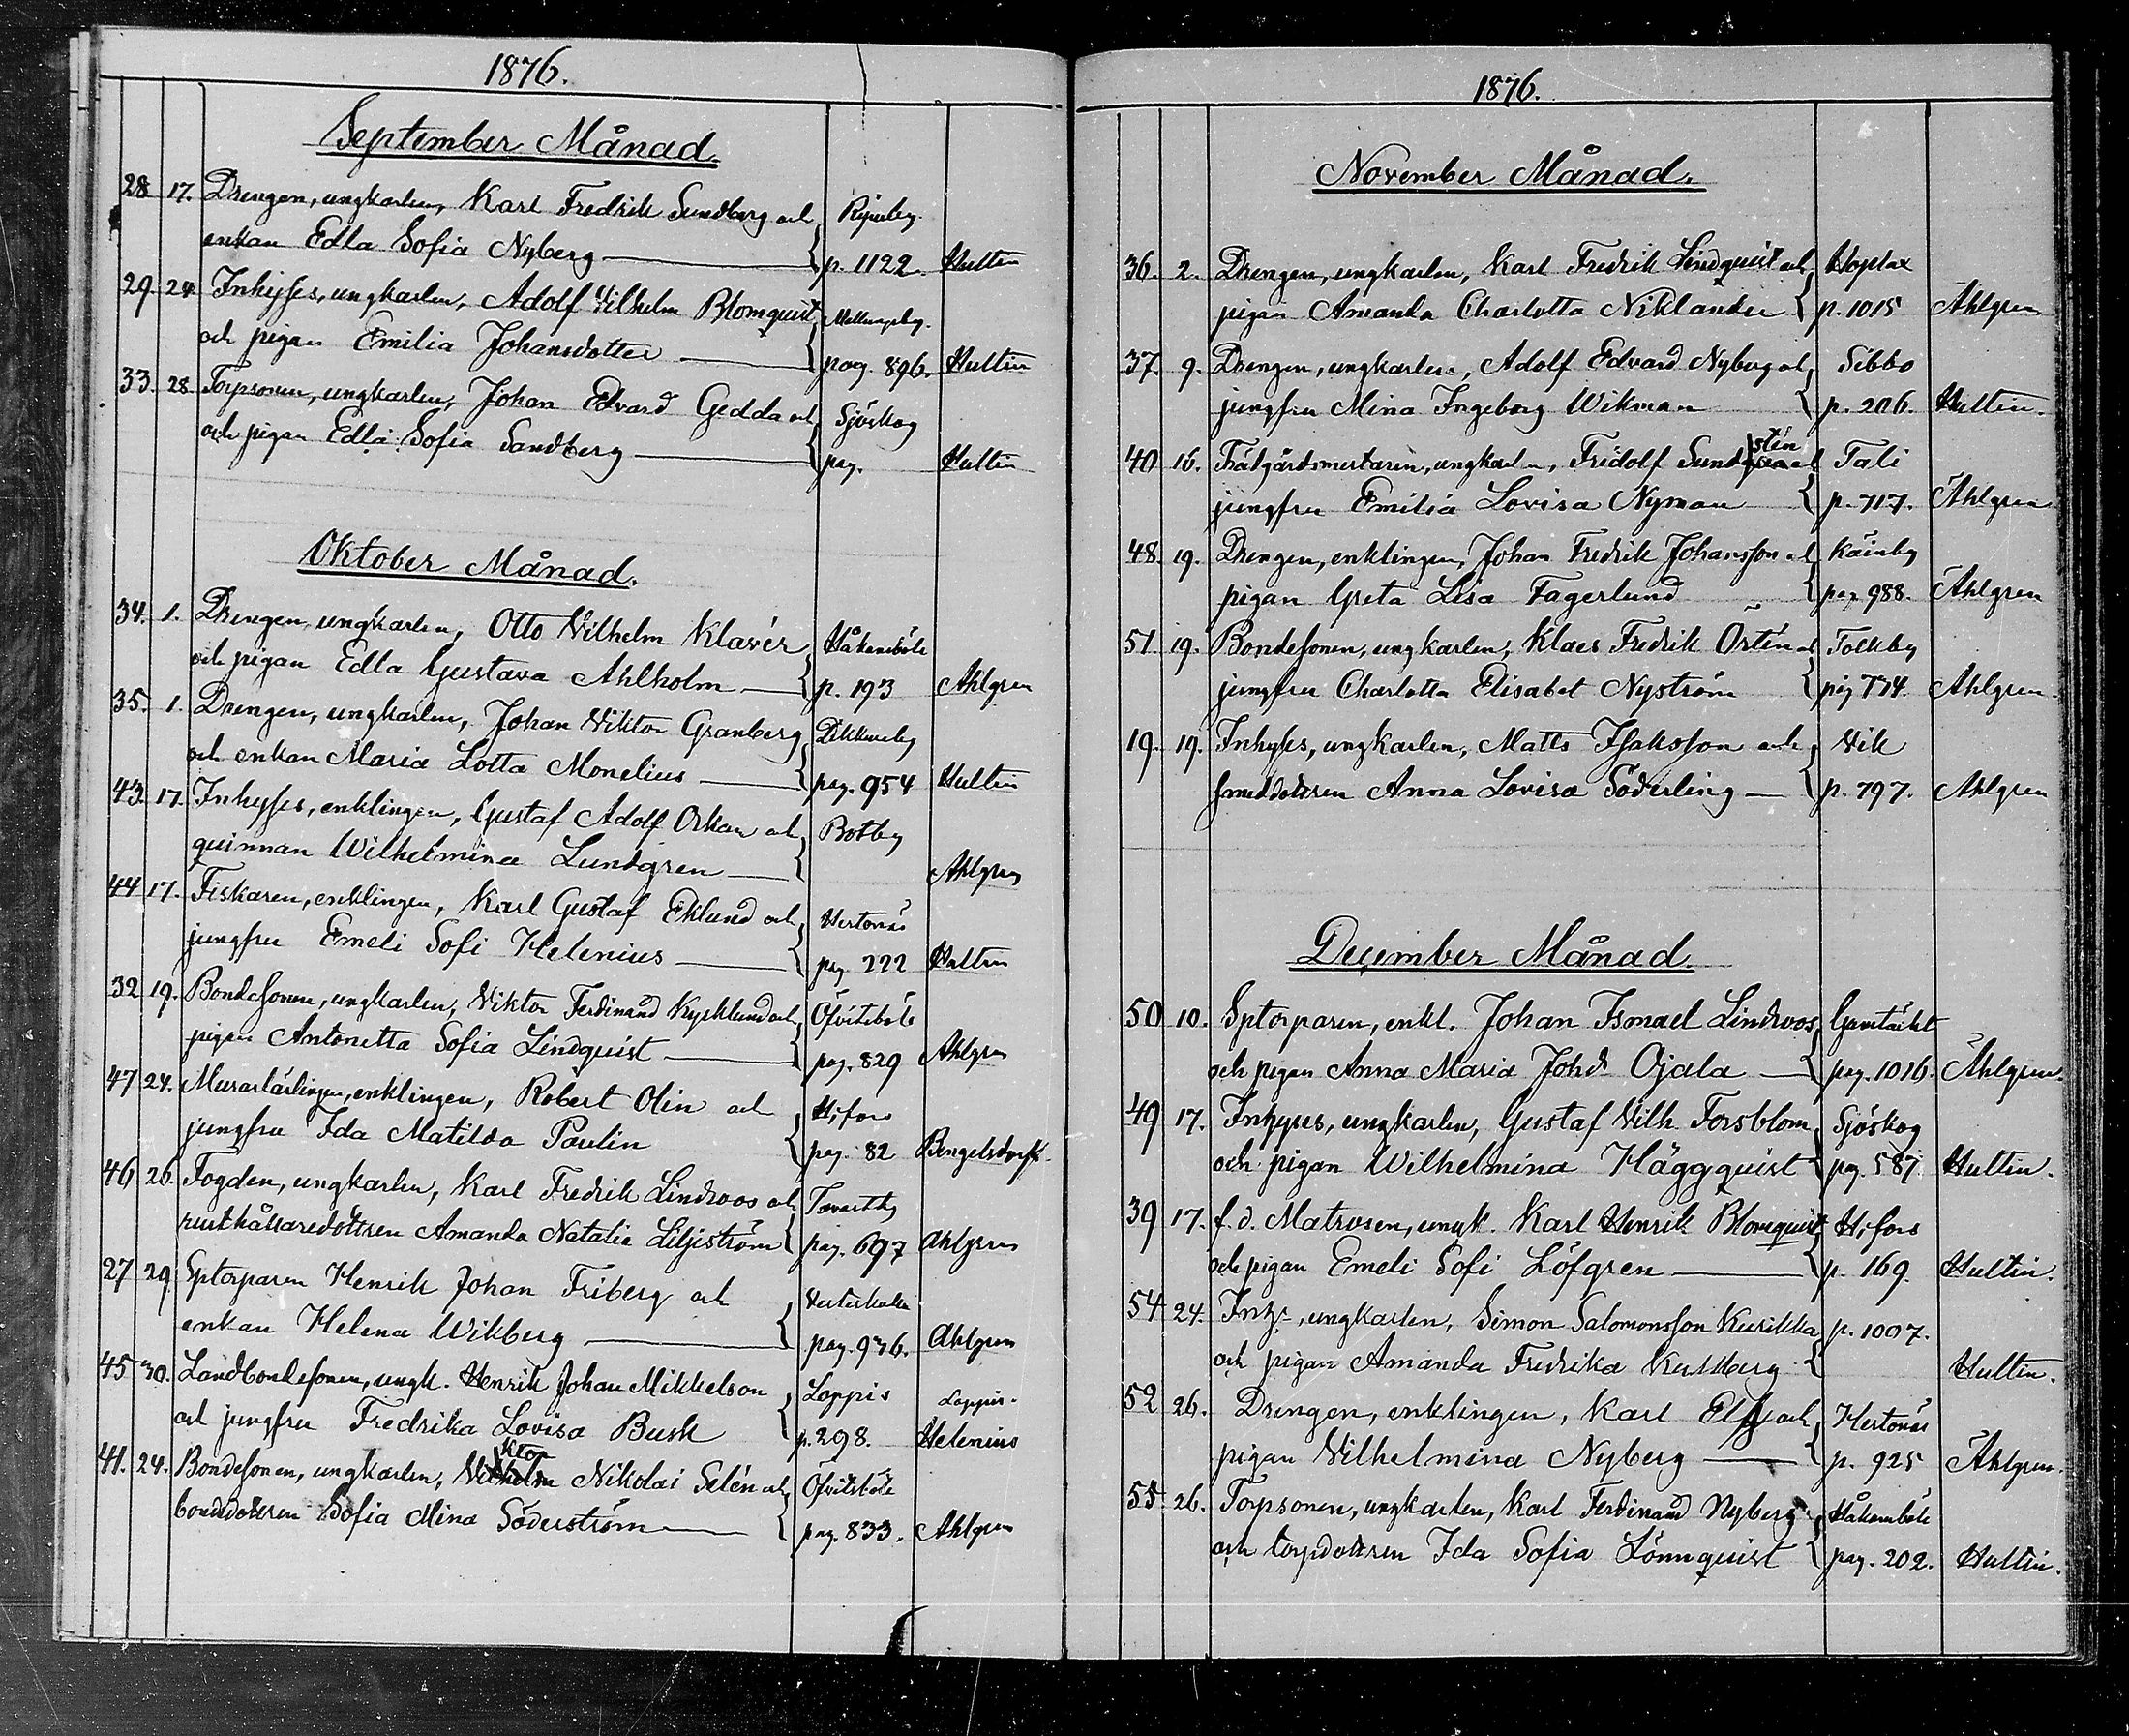 1876.
September Månad.
28 17. Drengen, ungkarlen, Karl Fredrik Sundberg och
enkan Edla Sofia Nyberg p. 1122. Hultin
29. 24. Inhyses, ungkarlen, Adolf Vilhelm Blomquist Mellungsby.
och pigan Emilia Johansdotter pag. 896. Hultin
33. 28. Torpsonen, ungkarlen, Johan Edvard Gedda och Sjöskog
och pigan Edla Sofia Sandberg pag. Hultin
Oktober Månad.
34. 1. Drengen, ungkarlen, Otto Vilhelm Klavér Håkansböle
och pigan Edla Gustava Ahlholm p. 193 Ahlgren
35. 1. Drengen, ungkarlen, Johan Viktor Granberg Dikkursby
och enkan Maria Lotta Monelius pag. 954 Hultin
43. 17. Inhyses, enklingen, Gustaf Adolf Orkan och Botby
quinnan Wilhelmina Lundgren Ahlgren
44 17. Fiskaren, enklingen, Karl Gustaf Eklund och Hertonäs
jungfru Emeli Sofi Helenius pag. 222 Hultin
32 19. Bondesonen, ungkarlen, Viktor Ferdinand Kycklund och Öfvitsböle
pigan Antonetta Sofia Lindquist pag. 829 Ahlgren
47 24. Murarlärlingen, enklingen, Robert Olin och H;fors
jungfru Ida Matilda Paulin pag. 82 Bengelsdorff.
46 26. Fogden, ungkarlen, Karl Fredrik Lindroos och
rusthållaredottren Amanda Natalia Liljeström pag. 697 Ahlgren
27 29. Sptorparen Henrik Johan Friberg och Vesterkulla
enkan Helena Wikberg pag. 976. Ahlgren
45 30. Landbondesonen, ungk. Henrik Johan Mikkelson Loppis Loppis.
och jungfru Fredrika Lovisa Busk p. 298. Helenius
41. 24. Bondesonen, ungkarlen, Viktor Nikolai Selén och Öfvitsböle
bondedottren Sofia Mina Söderström pag. 833. Ahlgren
1876.
November Månad.
36. 2. Drengen, ungkarlen, Karl Fredrik Lindquist och Hoplax
pigan Amanda Charlotta Niklander p. 1015 Ahlgren
37. 9. Drengen, ungkarlen, Adolf Edvard Nyberg och Sibbo
jungfru Mina Ingeborg Wikman p. 206. Hultin.
40 16. Trädgårdsmestaren, ungkarlen, Fridolf Sundstén och Tali
jungfru Emilia Lovisa Nyman p. 717. Ahlgren
48. 19. Drengen, enklingen, Johan Fredrik Johansson och
pigan Greta Lisa Fagerlund pag 988. Ahlgren
51 19. Bondesonen, ungkarlen, Klaes Fredrik Östén och Tolkby
jungfru Charlotta Elisabet Nyström pag 774. Ahlgren.
19. 19. Inhyses, ungkarlen, Matts Isaksson och Vik
smeddottren Anna Lovisa Söderling p. 797. Ahlgren
December Månad.
50 10. Sptorparen, enkl. Johan Ismael Lindroos Gumtäkt
och pigan Anna Maria Johds Ojala pag. 1016. Ahlgren.
49 17. Inhyses, ungkarlen, Gustaf Vilh. Forsblom Sjöskog
och pigan Wilhelmina Häggquist pag. 587 Hultin.
39 17. f. d. Matrosen, ungk. Karl Henrik Blomquist H;fors
och pigan Emeli Sofi Löfgren p. 169. Hultin.
54 24. Inhs, ungkarlen, Simon Salomonsson Kurikka p. 1007.
och pigan Amanda Fredrika Hultin.
52 26. Drengen, enklingen, Karl Elg och Hertonäs
pigan Vilhelmina Nyberg p. 925 Ahlgren.
55 26. Torpsonen, ungkarlen, Karl Ferdinand Nyberg Håkansböle
och torpdottren Ida Sofia Lönnquist pag. 202. Hultin.